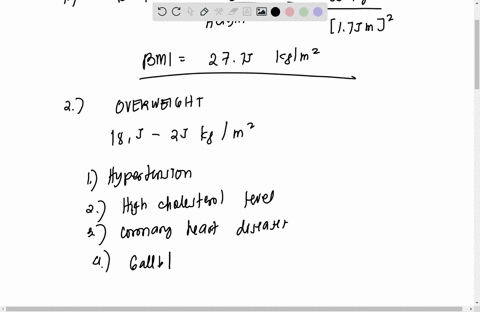 [1.75m]²
BMI = 27.75 kg/m²
2.) OVERWEIGHT
18.5 - 25 kg/m²
1.) Hypertension
2.) High cholesterol level
3.) coronary heart diseases
4.) Gallbl